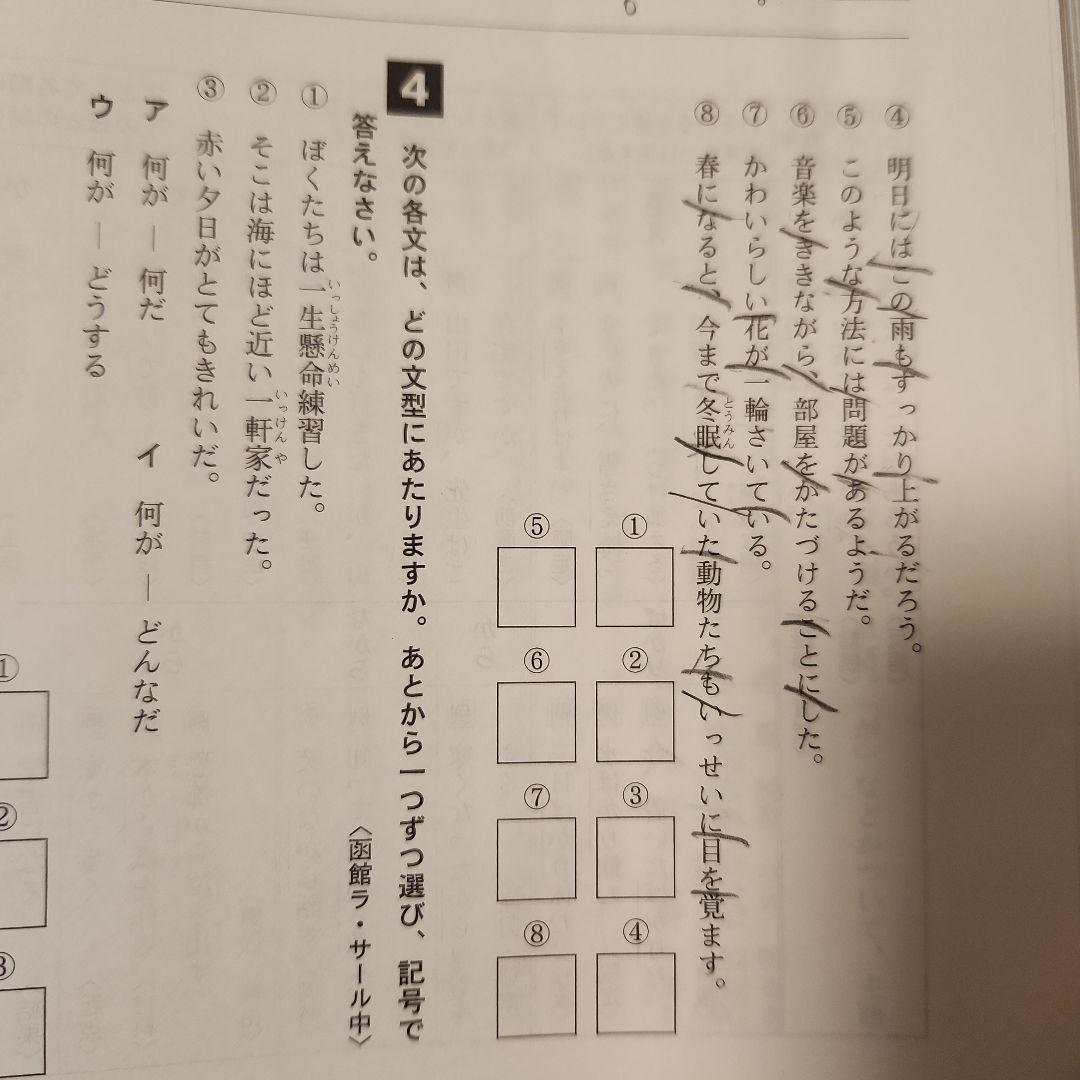 ④ 明日にはこの雨もすっかり上がるだろう。
⑤ このような方法には問題があるようだ。
⑥ 音楽をききながら、部屋をかたづけることにした。
⑦ かわいらしい花が一輪さいている。
⑧ 春になると、今まで冬眠していた動物たちもいっせいに目を覚ます。
とうみん
① ② ③ ④
⑤ ⑥ ⑦ ⑧
4 次の各文は、どの文型にあたりますか。あとから一つずつ選び、記号で
答えなさい。 〈函館ラ・サール中〉
① ぼくたちは一生懸命練習した。
いっしょうけんめい
② そこは海にほど近い一軒家だった。
いっけんや
③ 赤い夕日がとてもきれいだ。
ア 何が―何だ イ 何が―どんなだ
ウ 何が―どうする
① ② ③